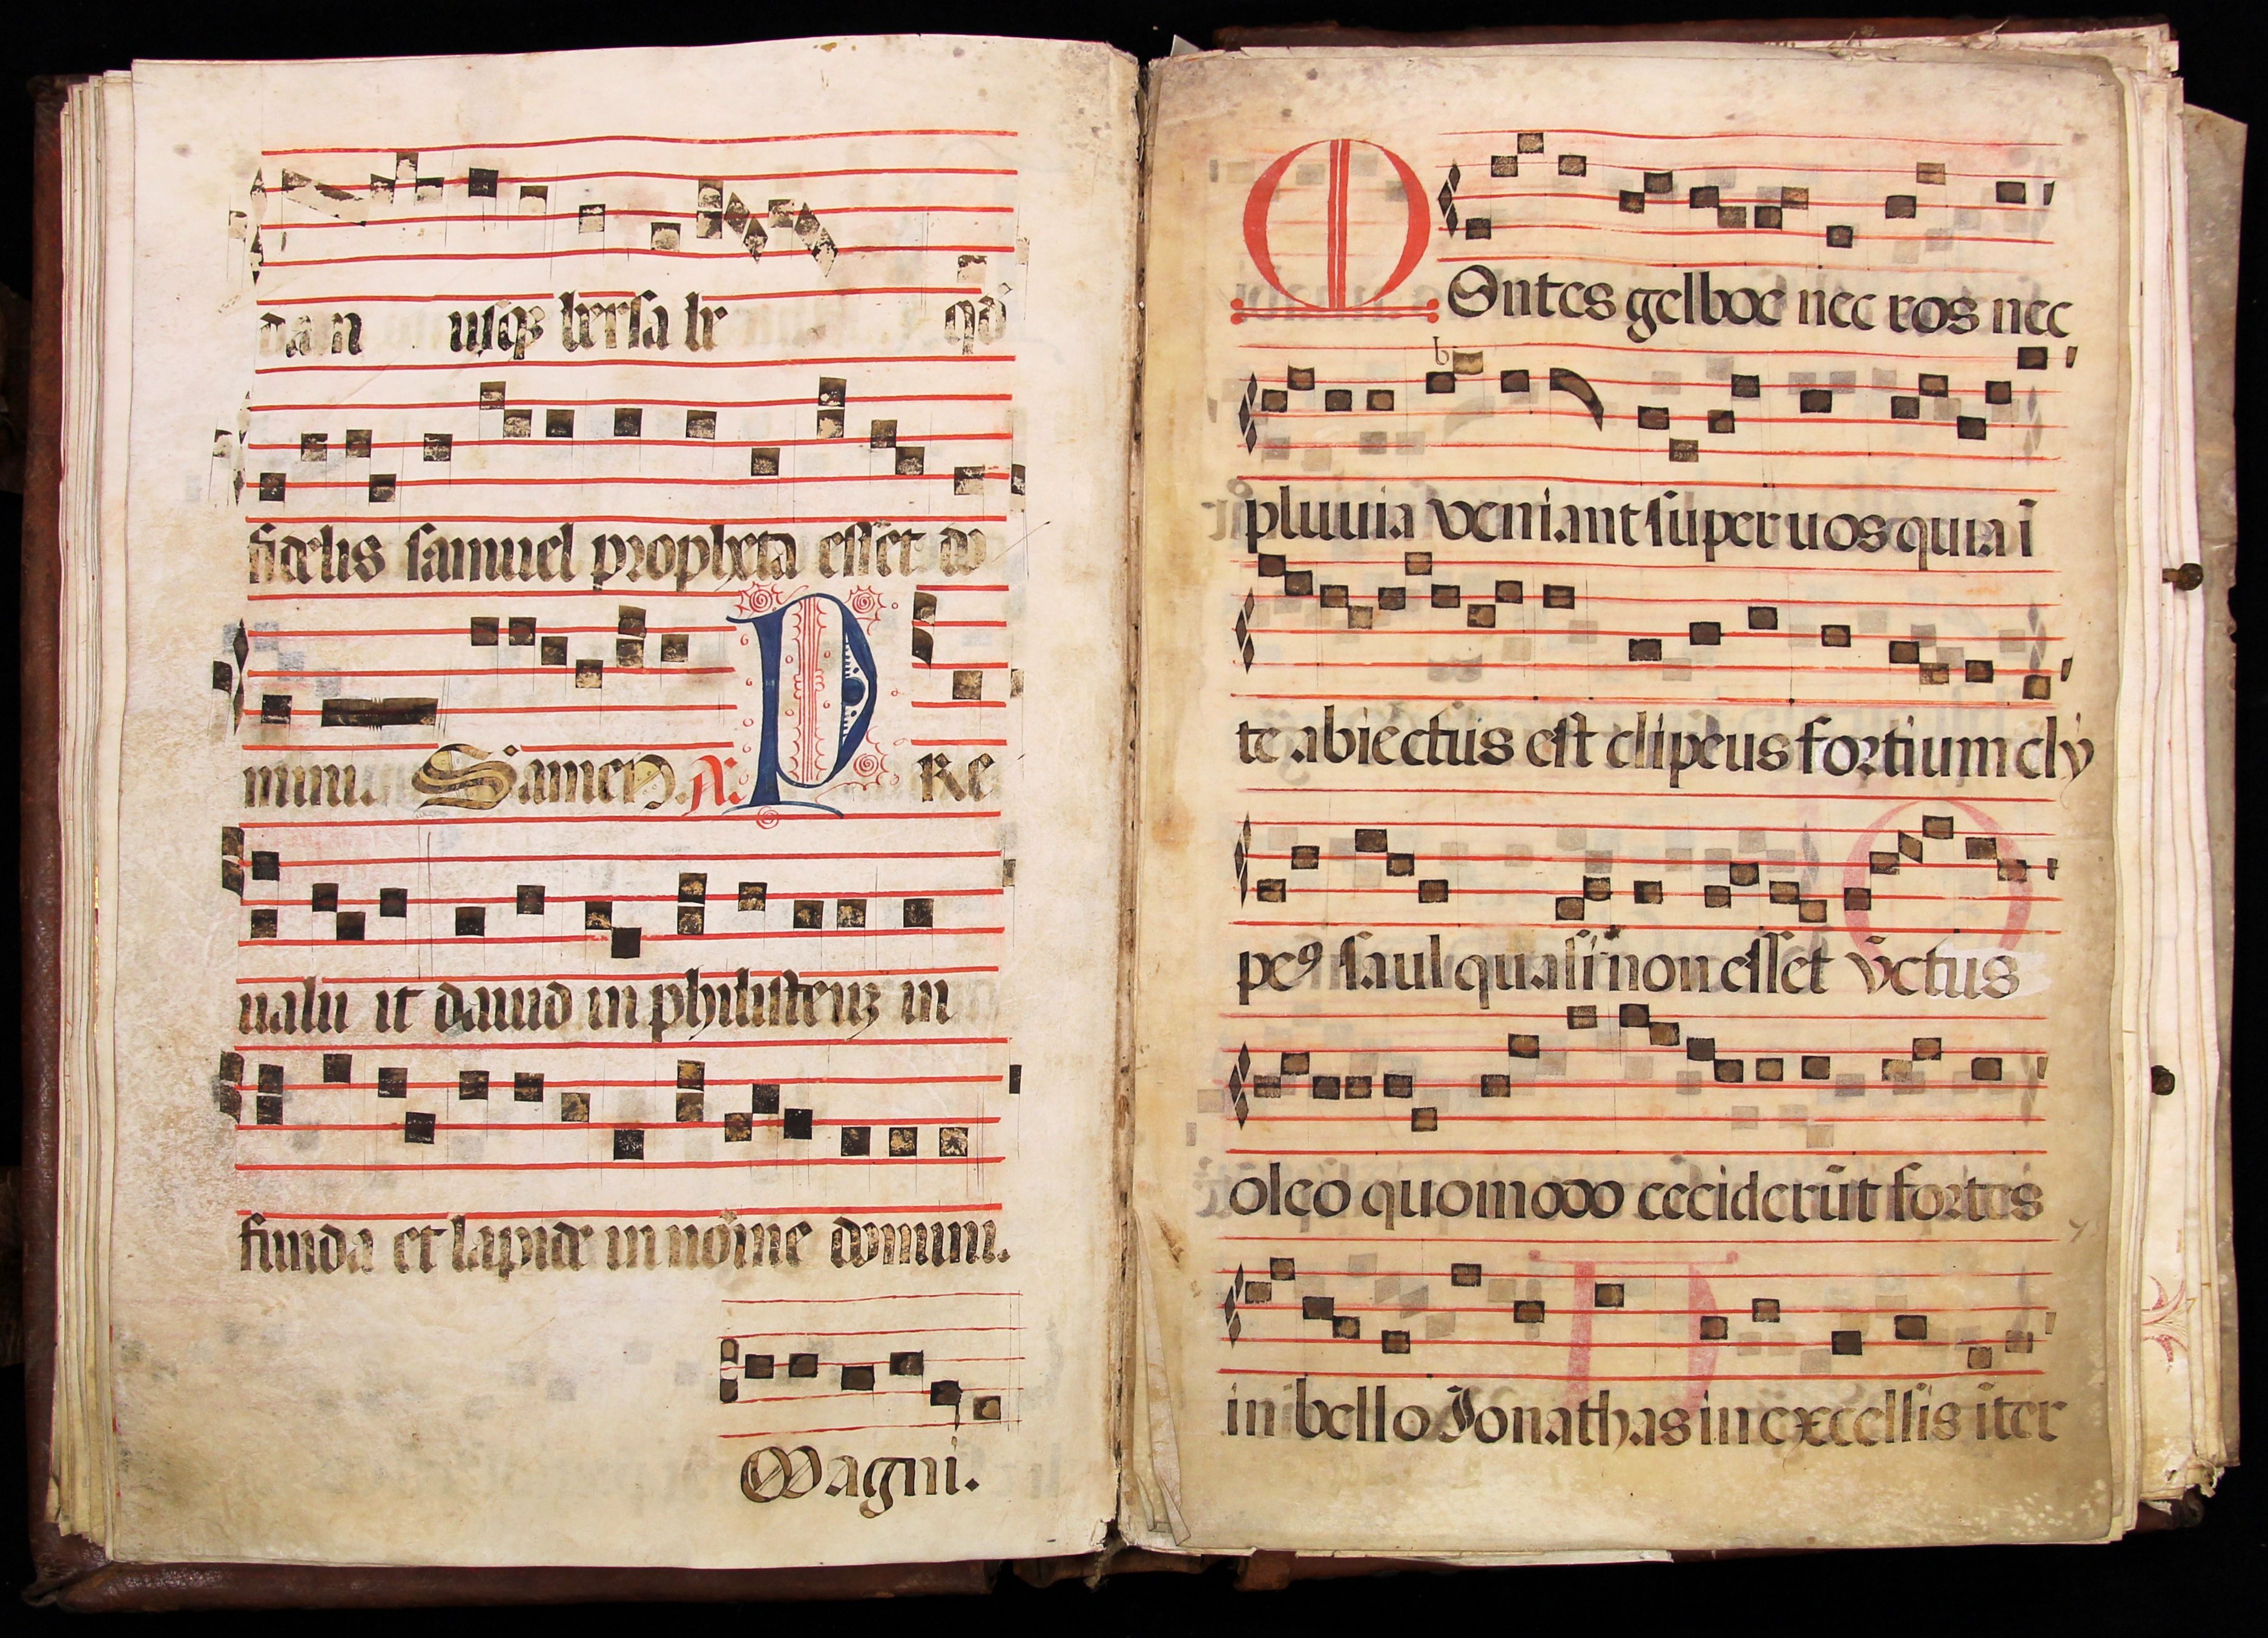 dan usqꝫ bersa be qđ
fidelis samuel propheta esset do
mini. Samen. A. P Re
ualu it dauid in philisteuꝫ in
funda et lapide in nōine domini.
Magni.
MOntes gelboe nec ros nec
pluuia veniant super uos quia ī
te abiectus est clipeus fortium cly
peꝯ saul quasi non esset v̄ctus
oleo quomodo ceciderūt fortes
in bello Jonathas in excelsis īter